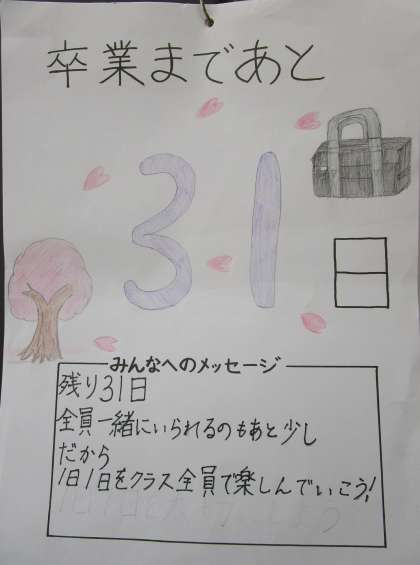 卒業まであと
31日
みんなへのメッセージ
残り31日
全員一緒にいられるのもあと少し
だから
1日1日をクラス全員で楽しんでいこう!